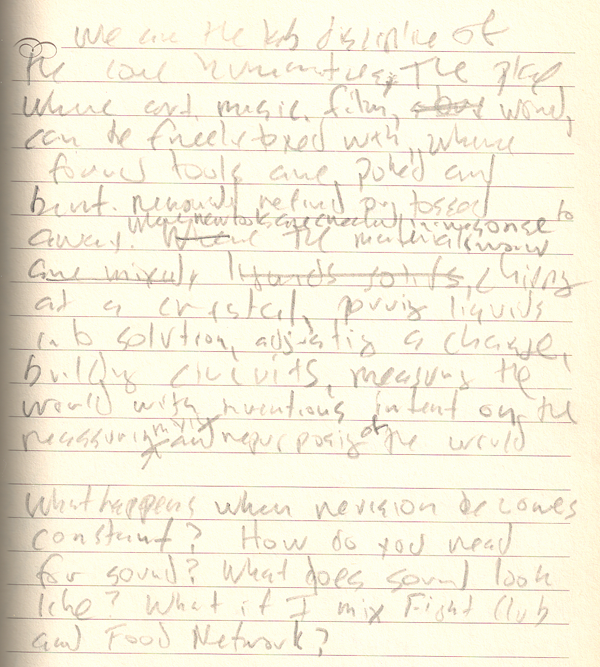 We are the lab discipline of
the core humanities, The place
where art, music, film, words,
can be freely toyed with, where
found tools are poked and
bent, remixed, refined, or tossed
where new tools are created in response to
away. Where the materials
are mixed, liquids solids,
at a crystal, liquids
into solution, adjusting a charge,
building circuits, measuring the
world with inventions intent on the
measuring mixing and repurposing of the world
What happens when revision becomes
constant? How do you read
for sound? What does sound look
like? What if I mix Fight Club
and Food Network?